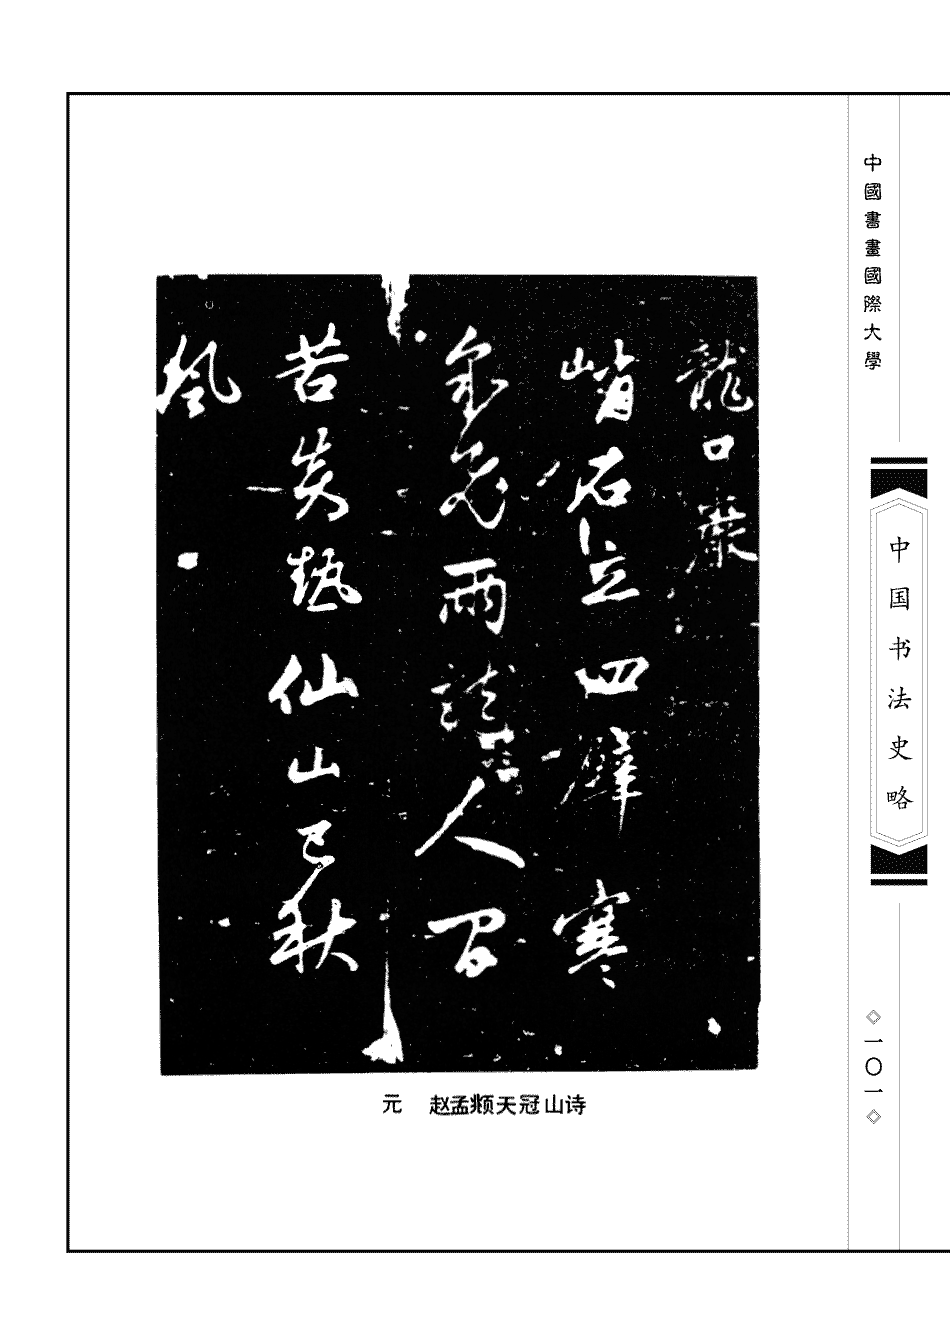 中國書畫國際大學
中国书法史略
龍口巖
峭石立四壁寒
泉飛兩龍人間
苦炎熱仙山已秋
風
元 赵孟𫖯天冠山诗
◇一〇一◇